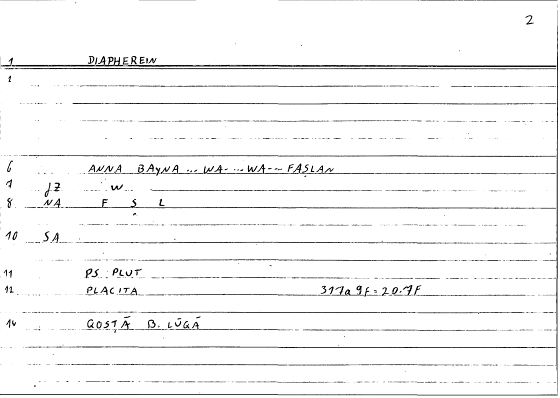 2
1 DIAPHEREIN
2
6 ANNA BAYNA ... WA- ... WA-- FAṢLAN
7 JZ W
8 NA F Ṣ L
10 SA
11 PS. PLUT
12 PLACITA 317a 9f = 20.7F
14 QOSṬĀ B. LŪQĀ